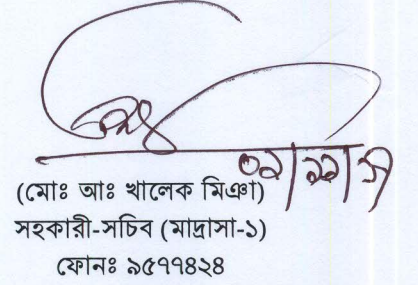 (মোঃ আঃ খালেক মিঞা)
সহকারী-সচিব (মাদ্রাসা-১)
ফোনঃ ৯৫৭৭৪২৪